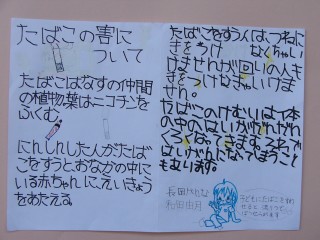 たばこの害に
ついて
たばこはなすの仲間
の植物葉はニコチンを
ふくむ
にんしんした人がたば
こをすうと、おなかの中に
いる赤ちゃんにえいきょう
をあたえる。
たばこをすう人は、つねに
きをつけ なくちゃい
けませんが回りの人も
きをつけなきゃいけま
せん。
たばこのけむりは1本
の中のはいがだんだん
くろくなってきます。それで
はいがんになってしまうこと
もあります。
長田
和田由月
子どもにたばこをすわ
せると、法りつで
ばっせられます